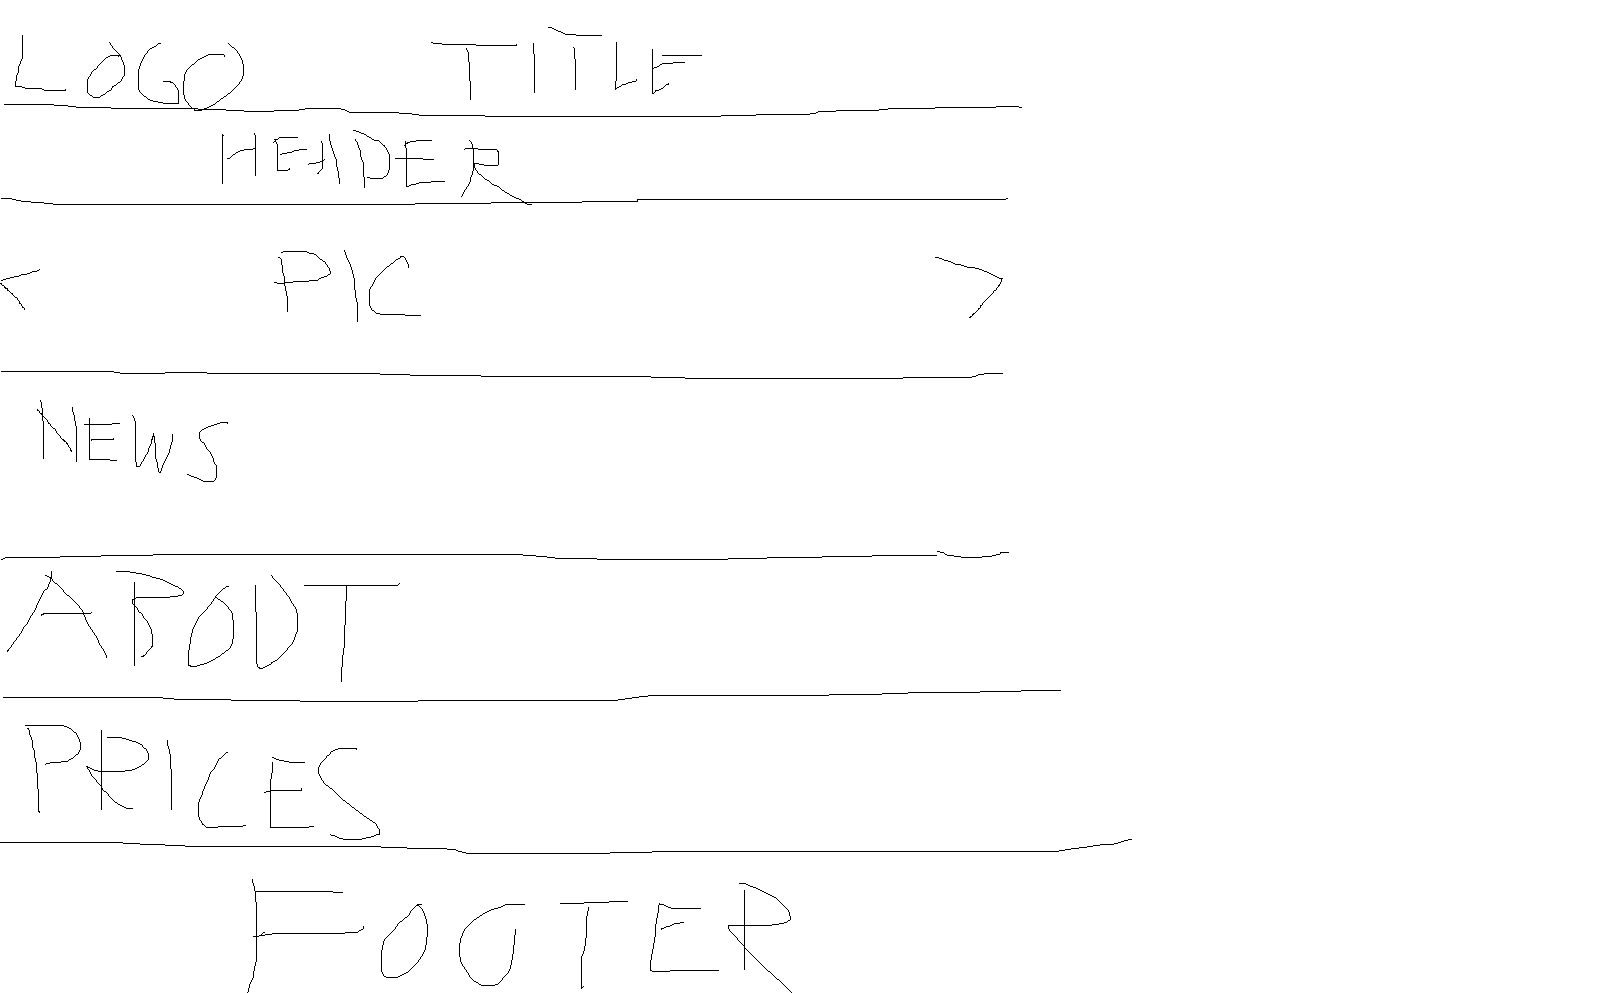 LOGO TITLE
HEADER
< PIC >
NEWS
ABOUT
PRICES
FOOTER